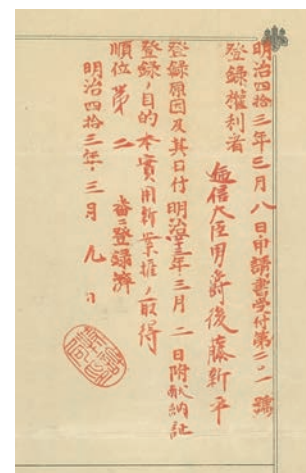 明治四拾三年三月八日申請書受付第二〇一號
登録權利者
逓信大臣男爵後藤新平
登録原因及其日付明治四三年三月二日附献納証
登録ノ目的本實用新案権ノ取得
順位第二番ニ登録済
明治四拾三年三月九日